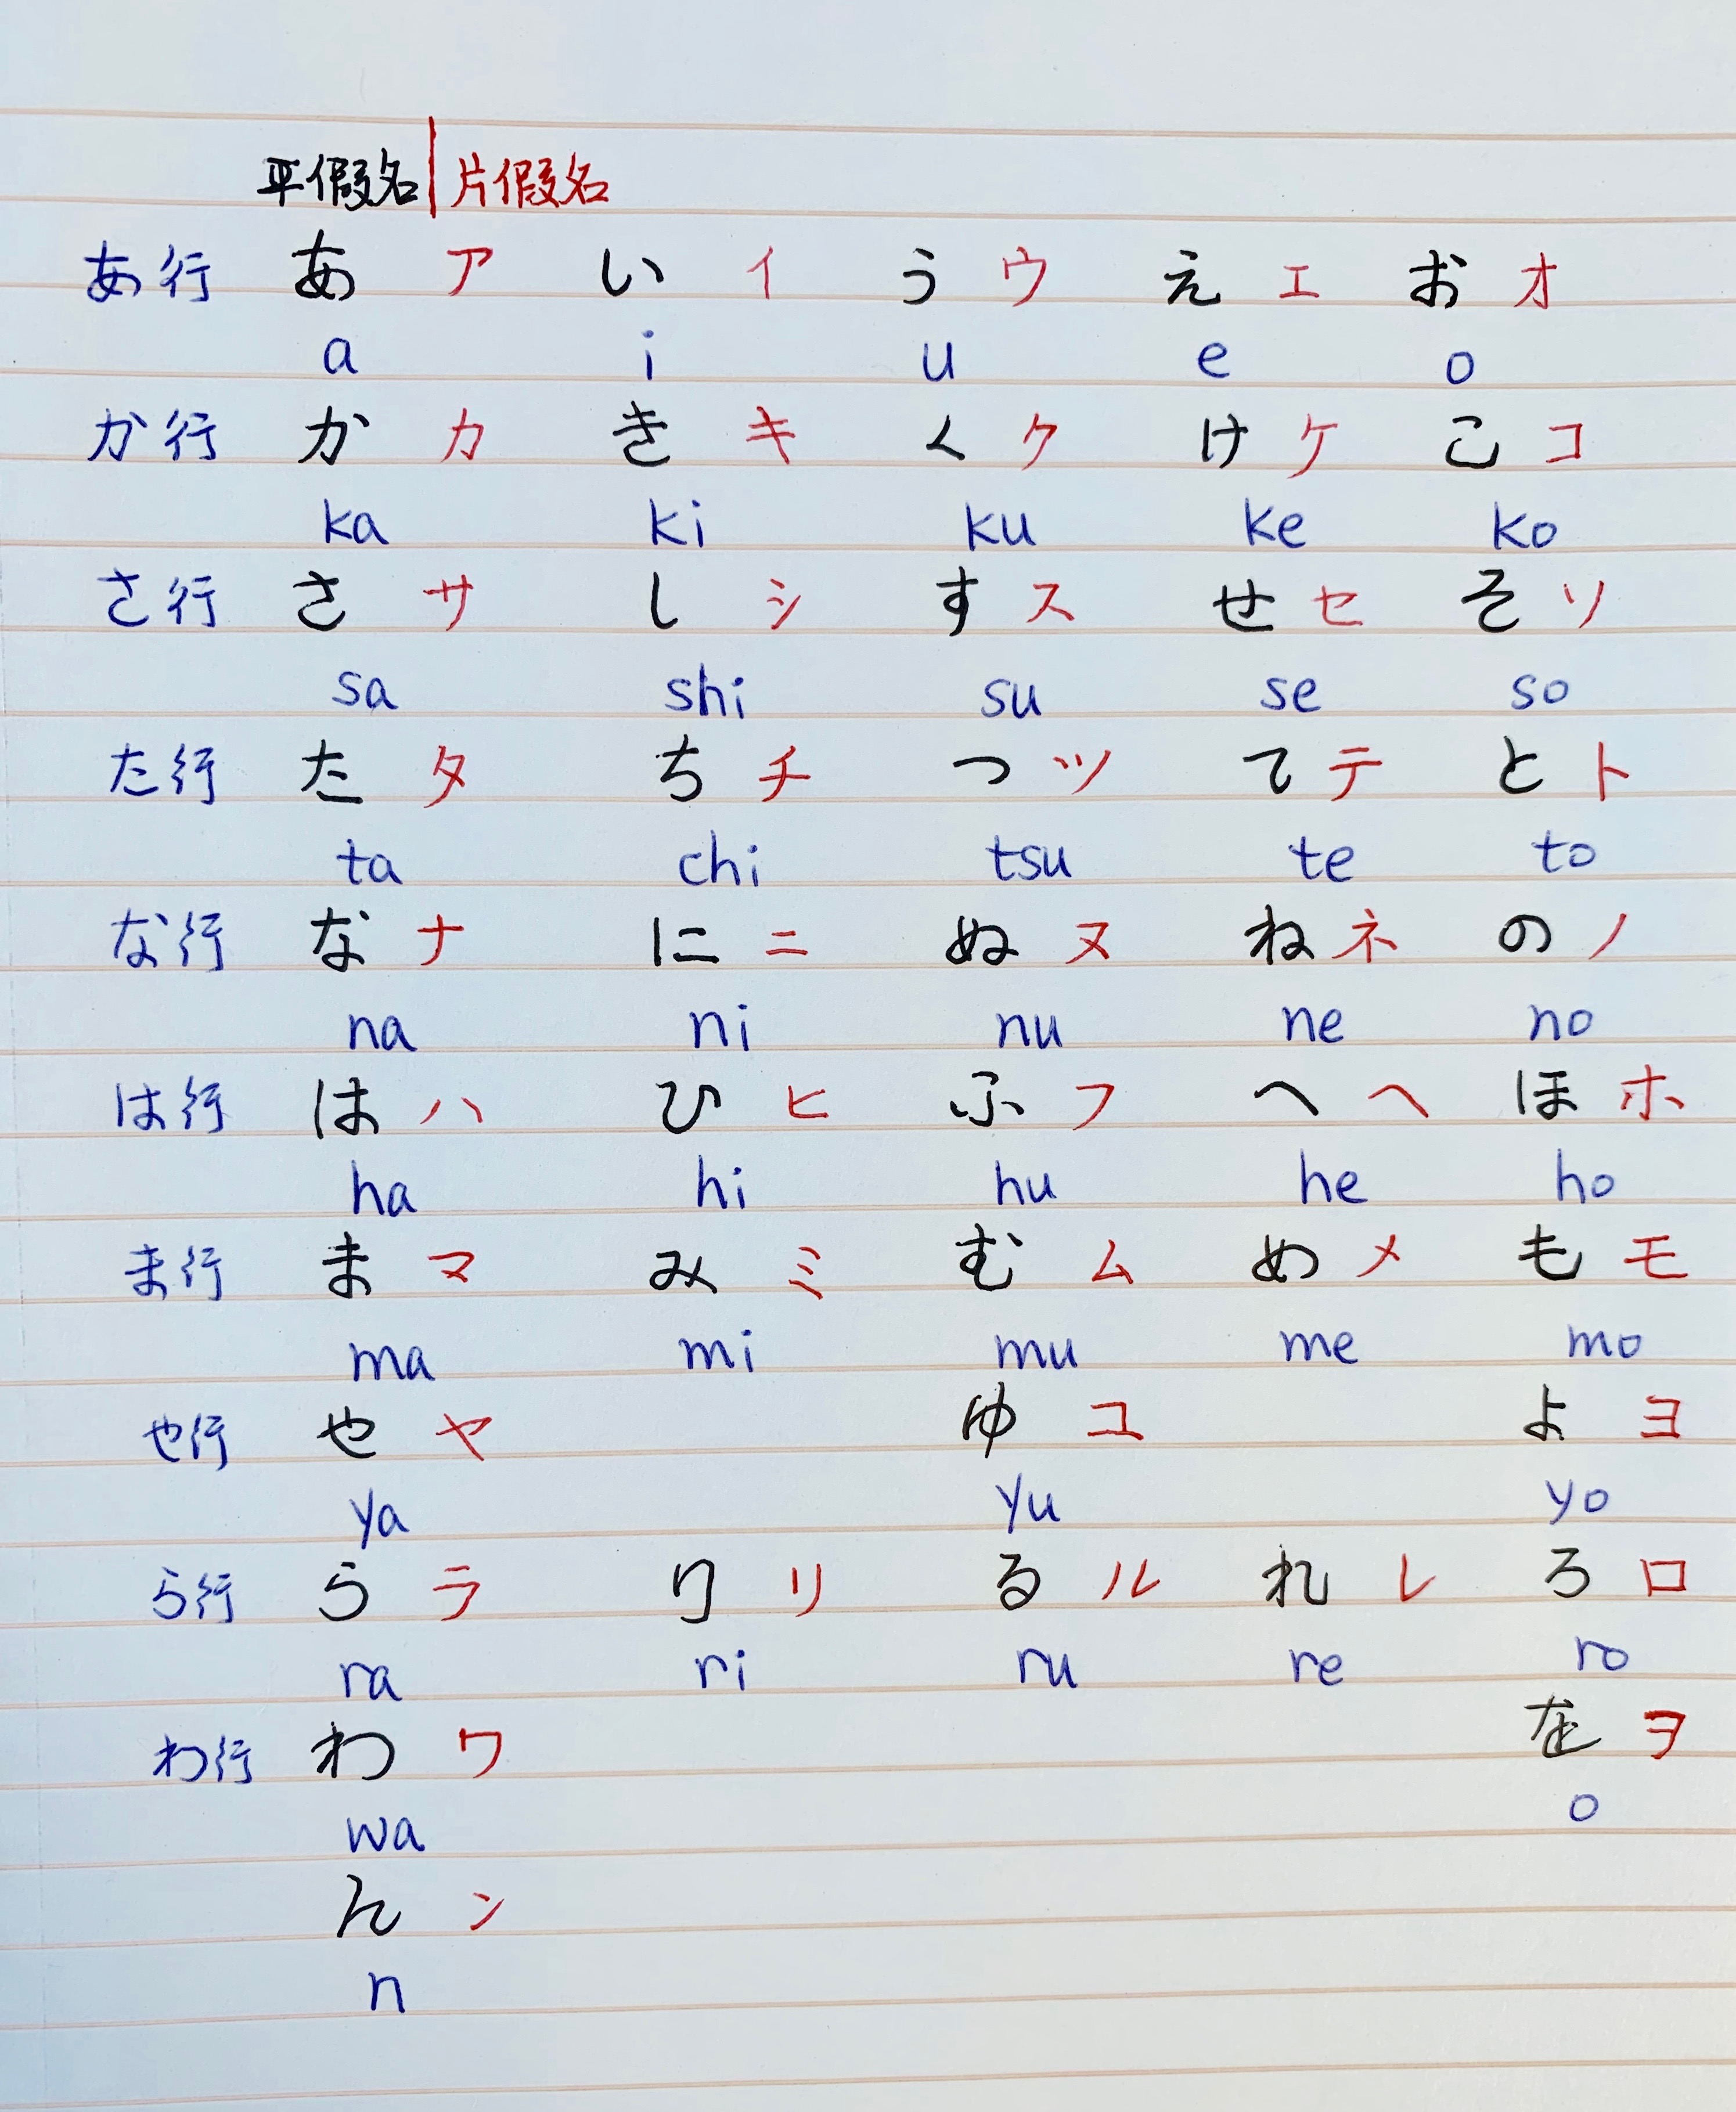 平假名|片假名
あ行 あ ア い イ う ウ え エ お オ
a i u e o
か行 か カ き キ く ク け ケ こ コ
ka ki ku ke ko
さ行 さ サ し シ す ス せ セ そ ソ
sa shi su se so
た行 た タ ち チ つ ツ て テ と ト
ta chi tsu te to
な行 な ナ に ニ ぬ ヌ ね ネ の ノ
na ni nu ne no
は行 は ハ ひ ヒ ふ フ へ ヘ ほ ホ
ha hi hu he ho
ま行 ま マ み ミ む ム め メ も モ
ma mi mu me mo
や行 や ヤ ゆ ユ よ ヨ
ya yu yo
ら行 ら ラ り リ る ル れ レ ろ ロ
ra ri ru re ro
わ行 わ ワ を ヲ
wa o
ん ン
n